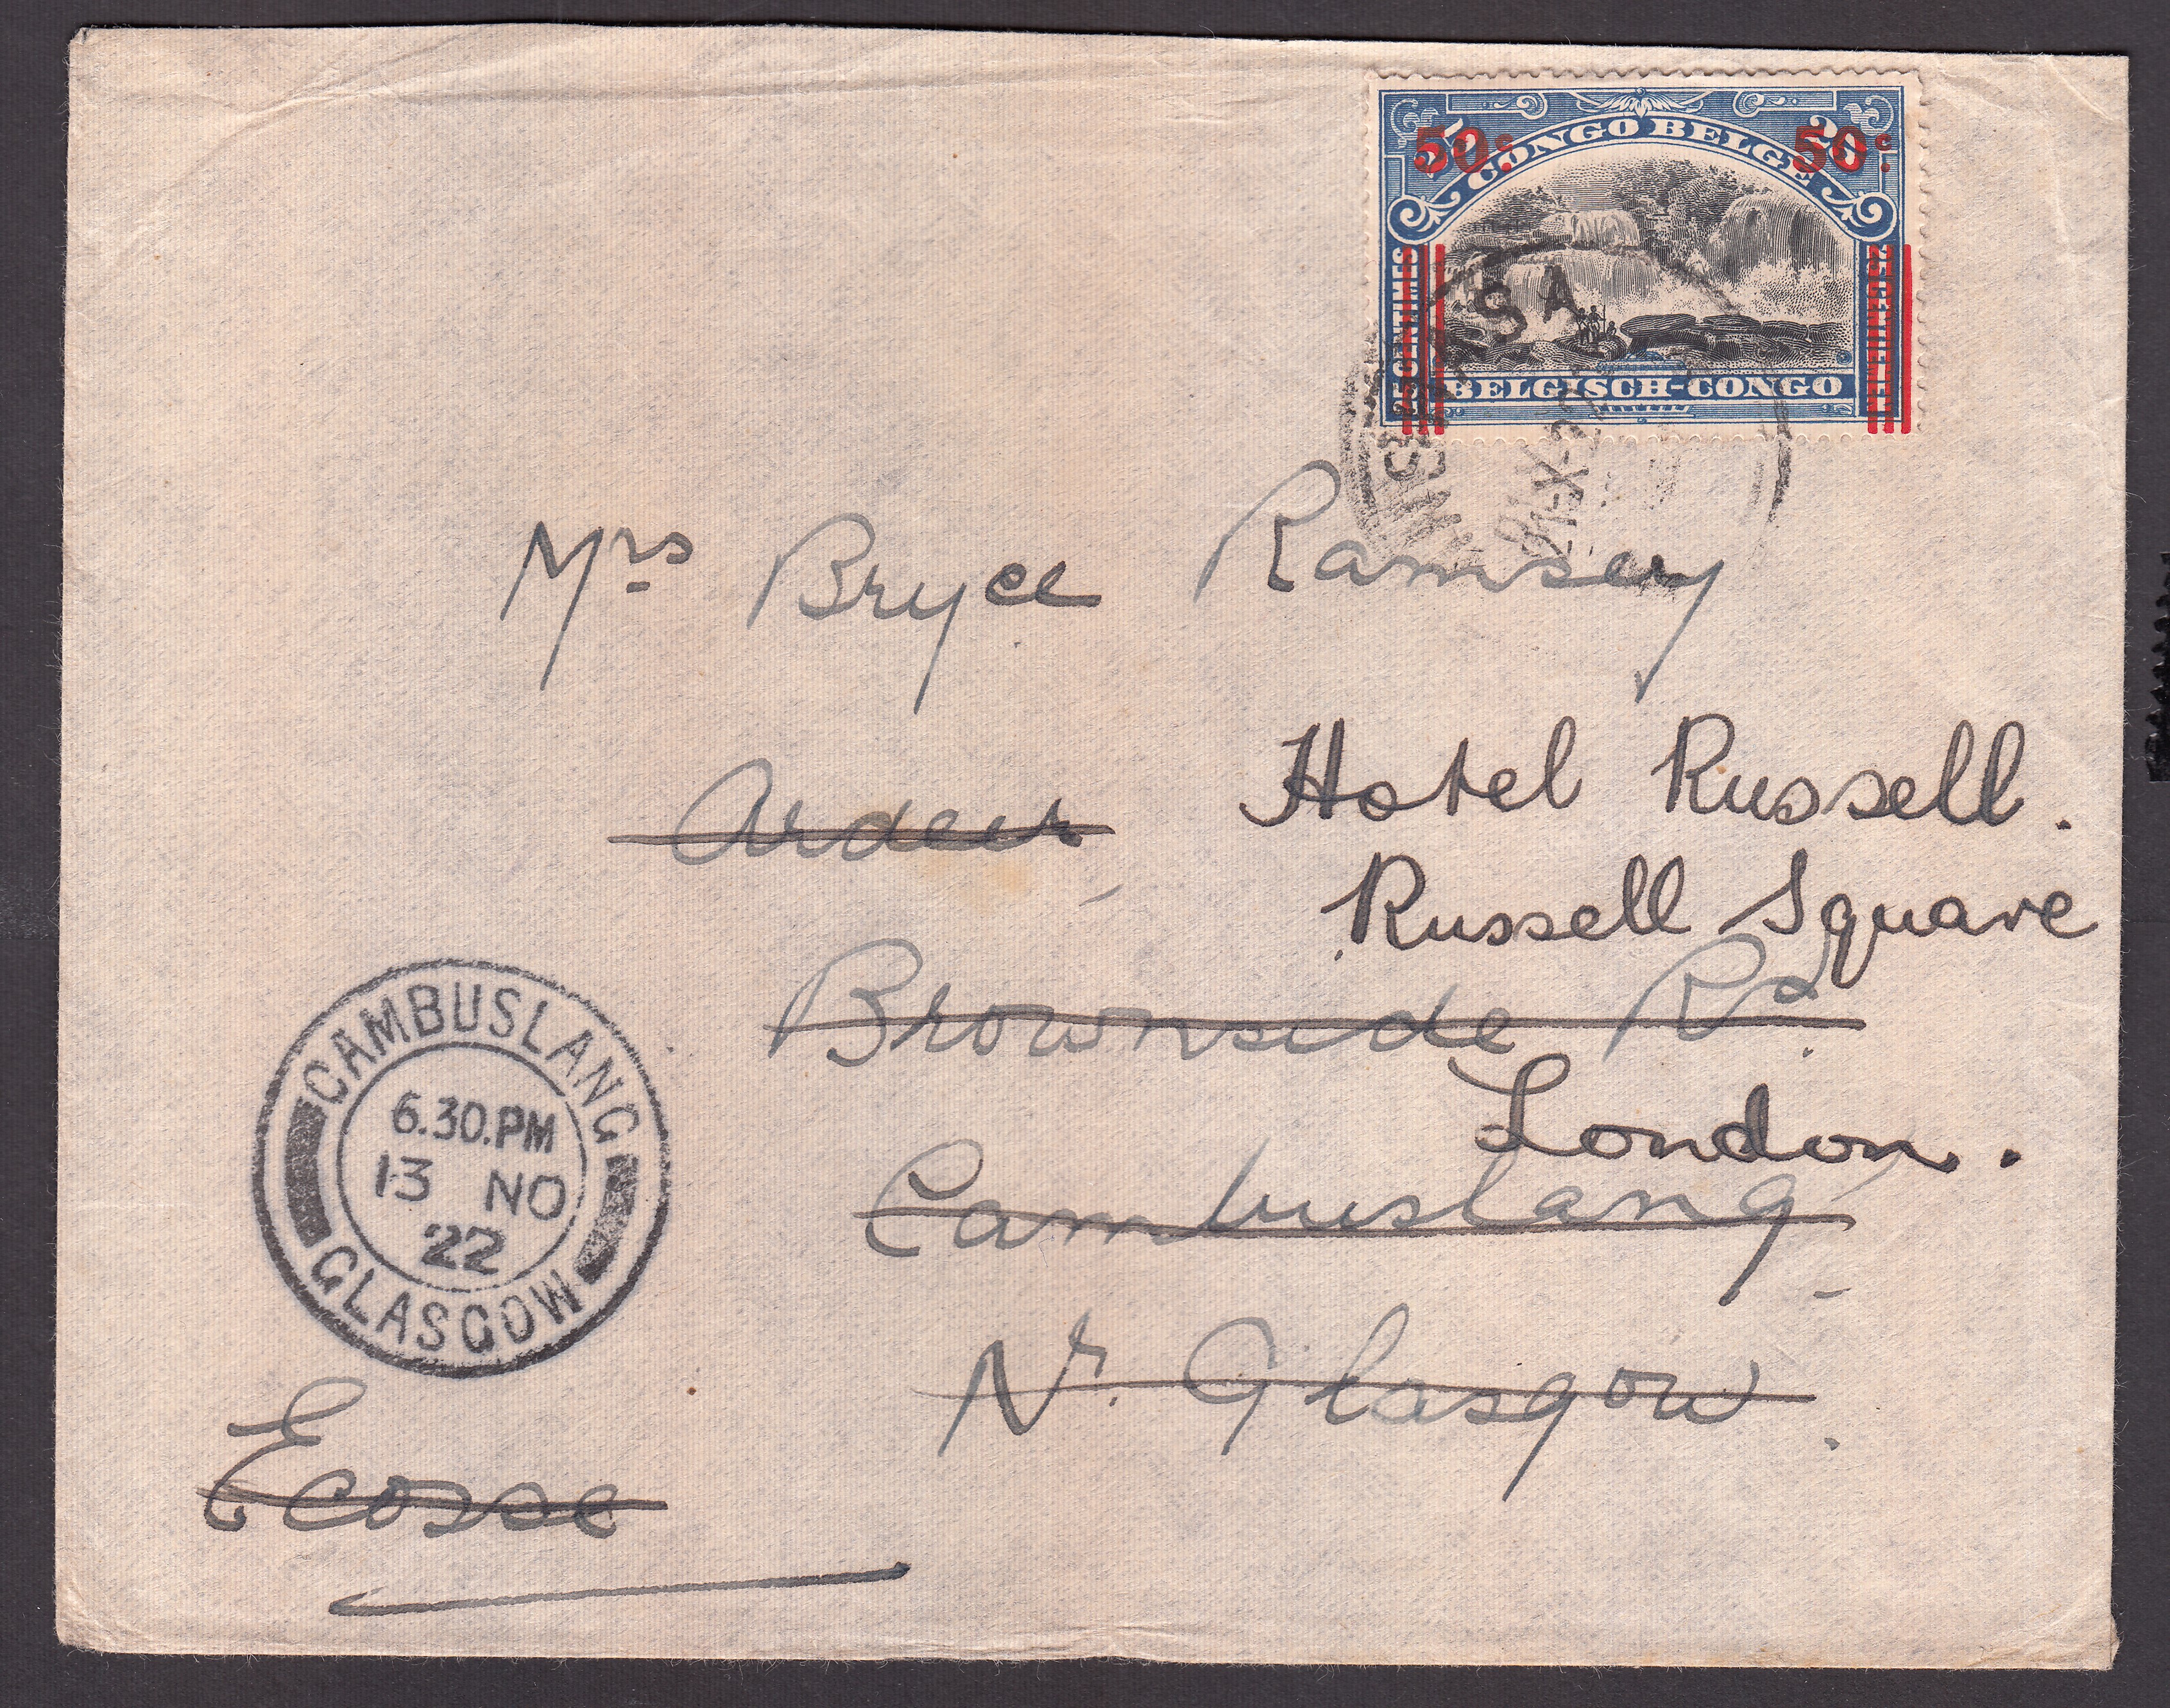 50c. 50c.
CONGO BELGE
25 CENTIMES
BELGISCH-CONGO
SA
Mrs Bryce Ramsey
Hotel Russell.
Russell Square
Brownside Rd.
London.
Cambuslang
Nr. Glasgow.
Ecosse
CAMBUSLANG
6.30.PM
13 NO
22
GLASGOW